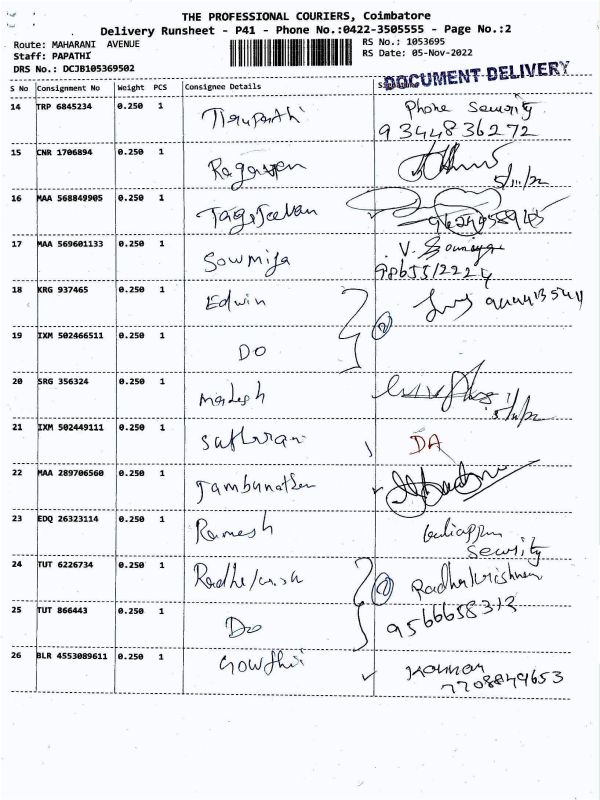 THE PROFESSIONAL COURIERS, Coimbatore
Delivery Runsheet - P41 - Phone No.:0422-3505555 - Page No.:2
Route: MAHARANI AVENUE
RS No.: 1053695
Staff: PAPATHI
RS Date: 05-Nov-2022
DRS No.: DCJB105369502
DOCUMENT DELIVERY
S No Consignment No Weight PCS Consignee Details
14 TRP 6845234 0.250 1 Phone Security
9344836272
15 CNR 1706894 0.250 1
5/11/22
16 MAA 568849905 0.250 1 Jagajeevan
17 MAA 569601133 0.250 1 Sowmiya V. Sowmiya
9865512224
18 KRG 937465 0.250 1 Edwin
19 IXM 502466511 0.250 1 Do
20 SRG 356324 0.250 1
5/11/22
21 IXM 502449111 0.250 1 DA
22 MAA 289706560 0.250 1
23 EDQ 26323114 0.250 1 Ramesh
Security
24 TUT 6226734 0.250 1 Radhakrishnan
25 TUT 866443 0.250 1 Do 9566658313
26 BLR 4553089611 0.250 1 Kannan
7708849653